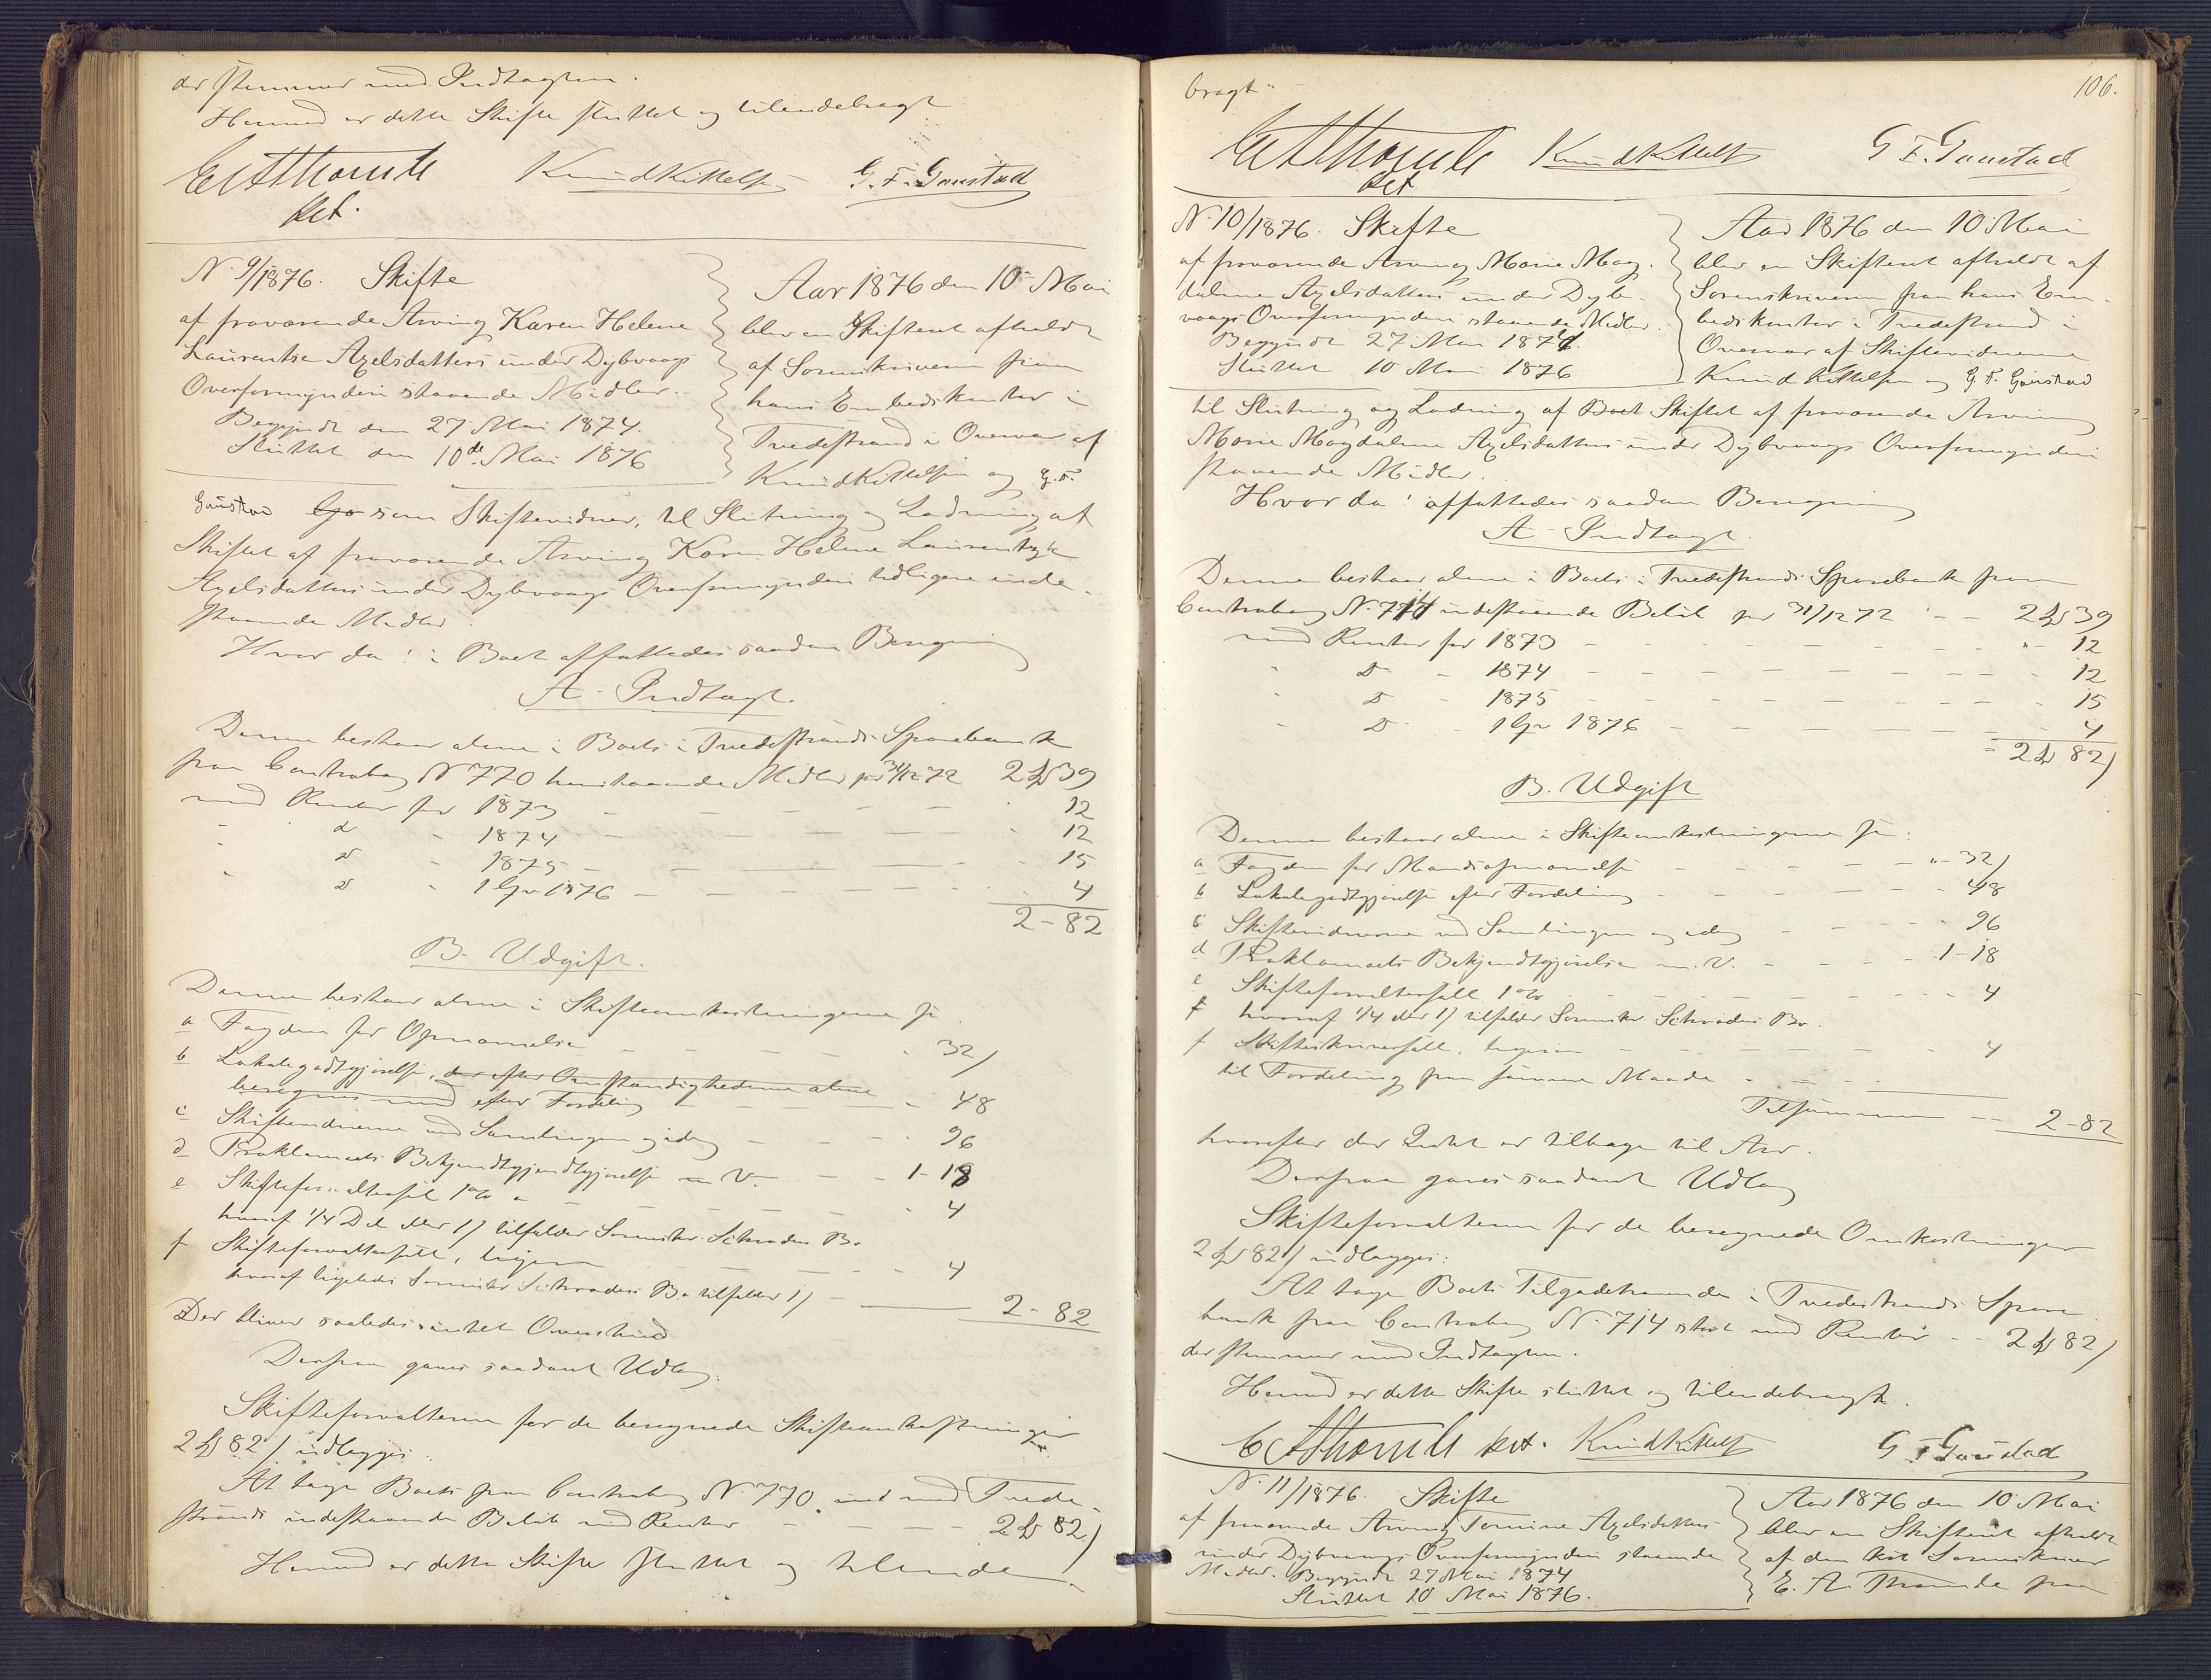 der stemmer med Indtægten.
Hermed er dette Skifte sluttet og tilendebragt
EAThomle KnudKittelsen G. F. Goustad
kst.
N. 9/1876. Skifte
af fraværende Arving Karen Helene
Laurentse Axelsdatters under Dybvaags
Overformynderi staaende Midler.
Begyndt den 27 Mai 1874.
Sluttet den 10de Mai 1876
Aar 1876 den 10 Mai
blev en Skifteret afholdt
af Sorenskriveren paa
hans Embedskontor i
Tvedestrand i Overvær af
Knud Kittelsen og G. F.
Goustad som Skiftevidner, til Slutning og Lodning af
Skiftet af fraværende Arving Karen Helene Laurentze
Axelsdatters under Dybvaags Overformynderi tidligere inde-
staaende Midler.
Hvor da! i Boet affattedes saadan Beregning
A - Indtægt.
Denne bestaar alene i Boets i Tvedestrands Sparebank
paa Contrabog N 770 henstaaende Midler pr 31/12 72 2 Spd 39
med Renter for 1873 - 12
" d - 1874 - 12
" d - 1875 - 15
" d - 1 Qv 1876 - 4
2 - 82
B. Udgift.
Denne bestaar alene i Skifteomkostningerne ß
a Fogden for Opnævnelse - 32/
b Lokalegodtgjørelse, der efter Omstændighederne alene
beregnes med efter Fordeling - 48
c Skiftevidnerne ved Samlingen og idag - 96
d Proklamaets Bekjendtgjendtgjørelse m. V. - 1-18
e Skifteforvaltersall 1% - 4
hvoraf 1/4 Del eller 1/ tilfalder Sorenskr. Schrøders Bo
f Skifteforvaltersall, ligesaa - 4
hvoraf ligeledes Sorenskr Schrøders Bo tilfalder 1/
2 - 82
Der bliver saaledes intet Overskud
Derpaa gaves saadant Udlæg:
Skifteforvalteren for de beregnede Skifteomkostninger
2 Spd 82/ udlægges:
At tage Boets paa Contrabog N 770 ved Tvede-
strands indestaaende Beløb med Renter - 2 Spd 82/
Hermed er dette Skifte sluttet og tilende-
106.
bragt.
EAThomle KnudKittelsen G F. Goustad
kst
N. 10/1876. Skifte
af fraværende Arving Marie Mag-
dalene Axelsdatters under Dybe-
vaags Overformynderi staaende Midler.
Begyndt 27 Mai 1874.
Sluttet 10 Mai 1876
Aar 1876 den 10 Mai
blev en Skifteret afholdt af
Sorenskriveren paa hans Em-
bedskontor i Tvedestrand i
Overvær af Skiftevidnerne
Knud Kittelsen og G. F. Goustad
til Slutning og Lodning af Boet Skiftet af fraværende Arving
Marie Magdalene Axelsdatters under Dybvaags Overformynderi
staaende Midler.
Hvor da! affattedes saadan Beregning
A - Indtægt.
Denne bestaar alene i Boets i Tvedestrands Sparebank paa
Contrabog N. 714 indestaaende Beløb pr 31/12 72 - 2 Spd 39
med Renter for 1873 - 12
" D - 1874 - 12
" D - 1875 - 15
" D - 1 Qv 1876 - 4
2 Spd 82/
B. Udgift
Denne bestaar alene i Skifteomkostningerne ß:
a Fogden for Mandsopnævnelse - 32/
b Lokalegodtgjørelse efter Fordeling - 48
c Skiftevidnerne ved Samlingen og idag - 96
d Proklamaets Bekjendtgjørelse m. V. - 1-18
e Skifteforvaltersall 1% - 4
hvoraf 1/4 eller 1/ tilfalder Sorenskr Schrøders Bo.
f Skifteskriversall, ligesaa - 4
til Fordeling paa samme Maade
Tilsammen - 2-82
hvorefter der Intet er tilbage til Arv.
Derpaa gaves saadant Udlæg
Skifteforvalteren for de beregnede Omkostninger
2 Spd 82/ udlægges:
At tage Boets Tilgodehavende i Tvedestrands Spare-
bank paa Contrabog N. 714 stort med Renter - 2 Spd 82/
der stemmer med Indtægten.
Hermed er dette Skifte sluttet og tilendebragt.
EAThomle kst. KnudKittelsen G F Goustad
N. 11/1876. Skifte
af fraværende Arving Tomine Axelsdatters
under Dybvaags Overformynderi staaende
Midler. Begyndt 27 Mai 1874
Sluttet 10 Mai 1876.
Aar 1876 den 10 Mai
blev en Skifteret afholdt
af den kst Sorenskriver
E. A. Thomle paa